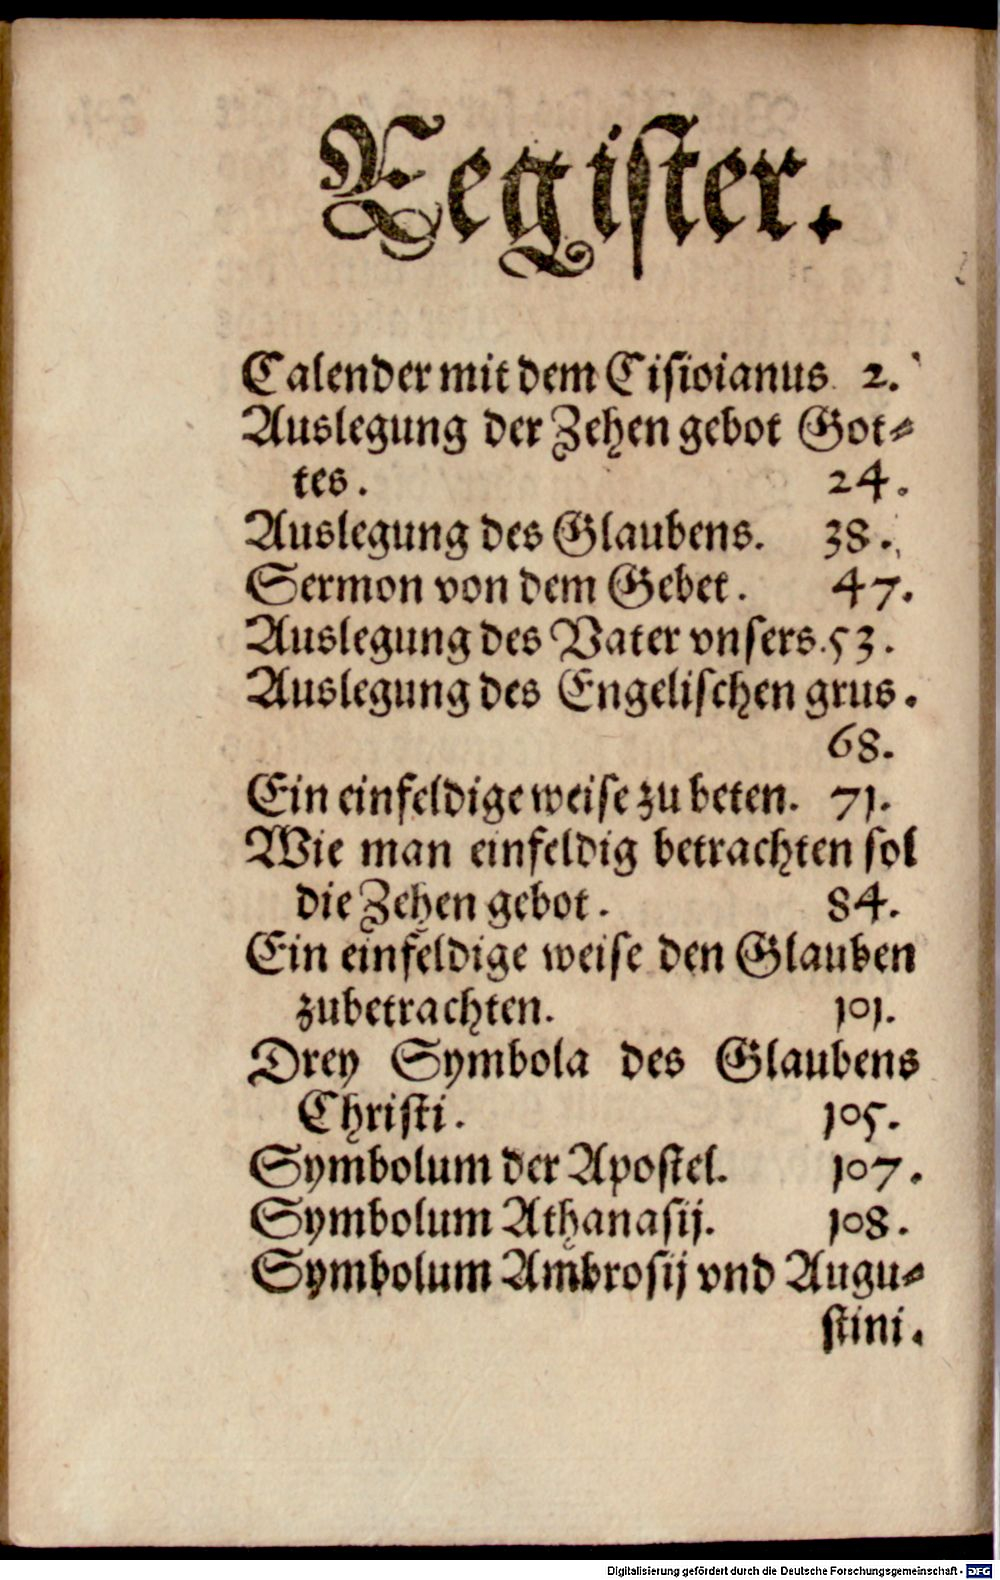 Regiſter.
Calender mit dem Ciſioianus 2.
Auslegung der Zehen gebot Got⸗
tes. 24.
Auslegung des Glaubens. 38.
Sermon von dem Gebet. 47.
Auslegung des Vater vnſers. 53.
Auslegung des Engeliſchen grus.
68.
Ein einfeldige weiſe zu beten. 71.
Wie man einfeldig betrachten ſol
die Zehen gebot. 84.
Ein einfeldige weiſe den Glauben
zubetrachten. 101.
Drey Symbola des Glaubens
Chriſti. 105.
Symbolum der Apoſtel. 107.
Symbolum Athanaſij. 108.
Symbolum Ambroſij vnd Augu⸗
ſtini.
Digitalisierung gefördert durch die Deutsche Forschungsgemeinschaft - DFG